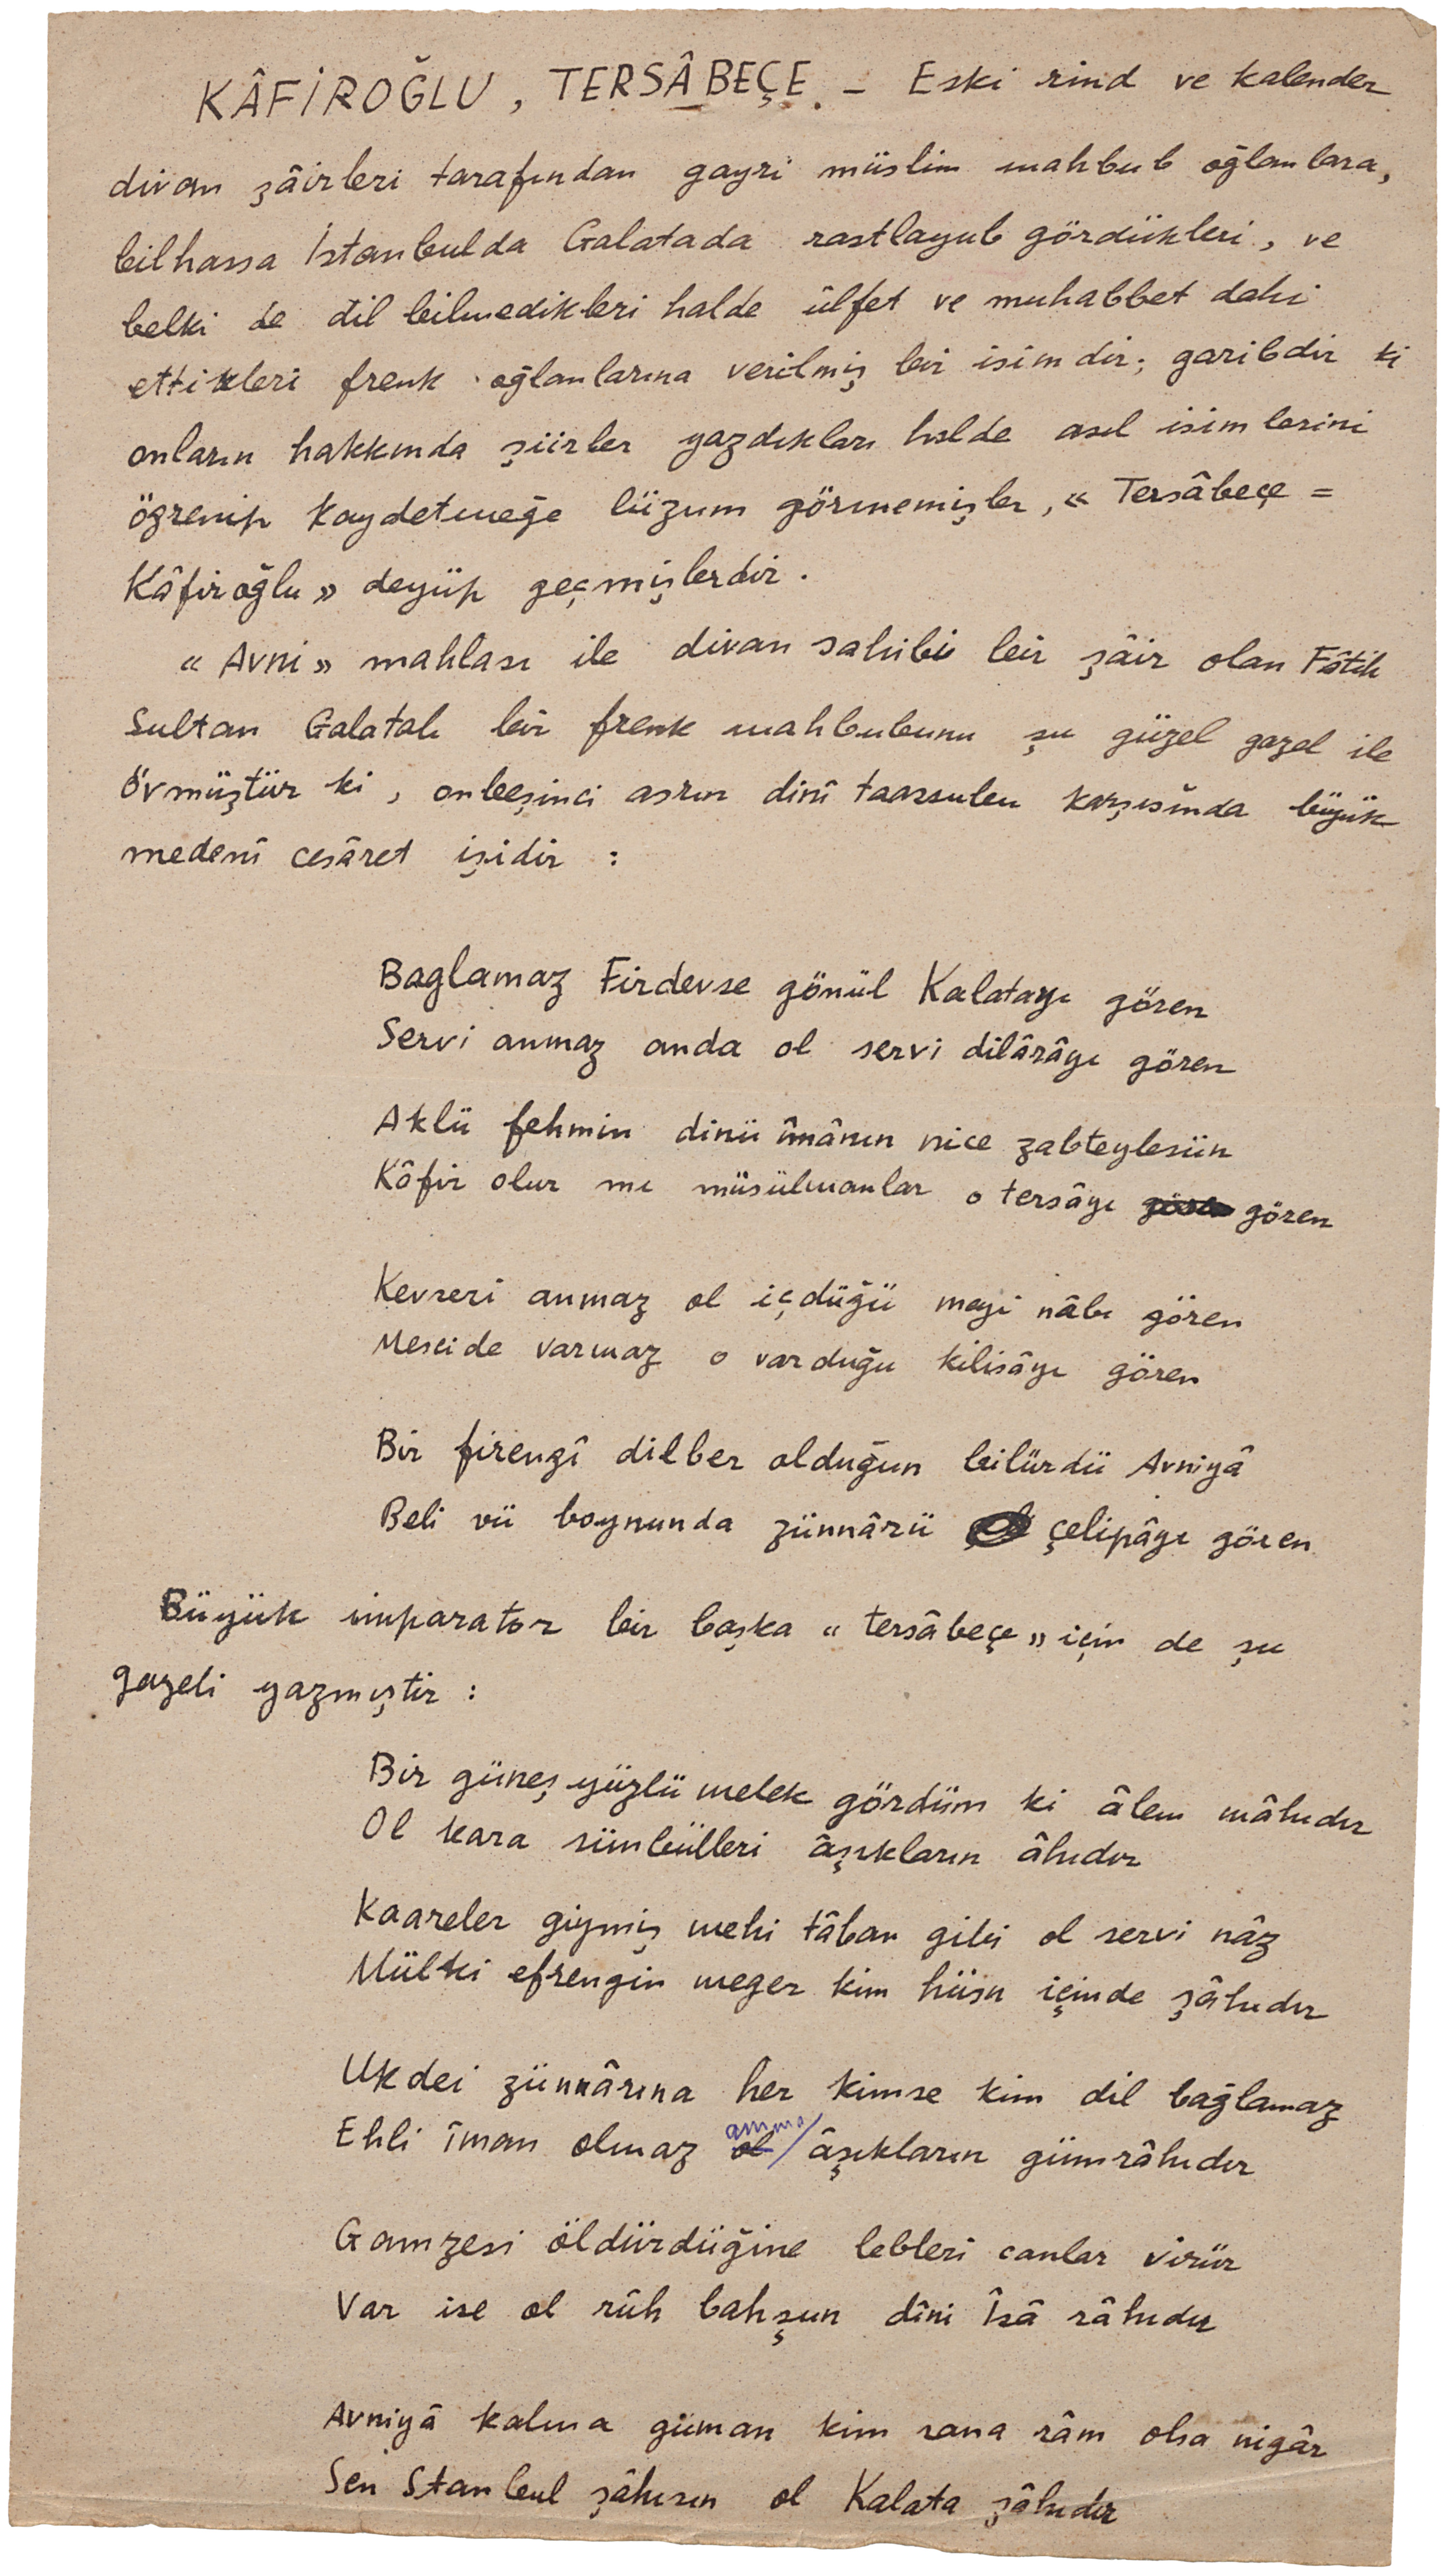 KÂFİROĞLU, TERSÂBEÇE. — Eski rind ve kalender
divan şâirleri tarafından gayri müslim mahbub oğlanlara,
bilhassa İstanbulda Galatada rastlayub gördükleri, ve
belki de dil bilmedikleri halde ülfet ve muhabbet dahi
ettikleri frenk oğlanlarına verilmiş bir isimdir; garibdir ki
onların hakkında şiirler yazdıkları halde asıl isimlerini
öğrenip kaydetmeğe lüzum görmemişler, « Tersâbeçe =
Kâfiroğlu » deyüp geçmişlerdir.
« Avni » mahlası ile divan sahibi bir şâir olan Fâtih
Sultan Galatalı bir frenk mahbubunu şu güzel gazel ile
övmüştür ki, onbeşinci asrın dinî taassubu karşısında büyük
medenî cesâret işidir :
Baglamaz Firdevse gönül Kalatayı gören
Servi anmaz anda ol servi dilârâyı gören
Aklü fehmin dinü îmânın nice zabteylesün
Kâfir olur mı müsülmanlar o tersâyı gören
Kevseri anmaz ol içdüğü meyi nâbı gören
Mescide varmaz o varduğu kilisâyı gören
Bir firengî dilber olduğun bilürdü Avniyâ
Beli vü boynunda zünnârü çelipâyı gören
Büyük imparator bir başka « tersâbeçe » için de şu
gazeli yazmıştir :
Bir güneş yüzlü melek gördüm ki âlem mâhıdır
Ol kara sümbülleri âşıkların âhıdır
Kaareler giymiş mehi tâban gibi ol servi nâz
Mülki efrengin meger kim hüsn içinde şâhıdır
Ukdei zünnârına her kimse kim dil bağlamaz
Ehli îman olmaz amma âşıkların gümrâhıdır
Gamzesi öldürdüğine lebleri canlar virür
Var ise ol rûh bahşun dîni Îsâ râhıdır
Avniyâ kalma güman kim sana râm olsa nigâr
Sen Stanbul şâhısın ol Kalata şâhıdır